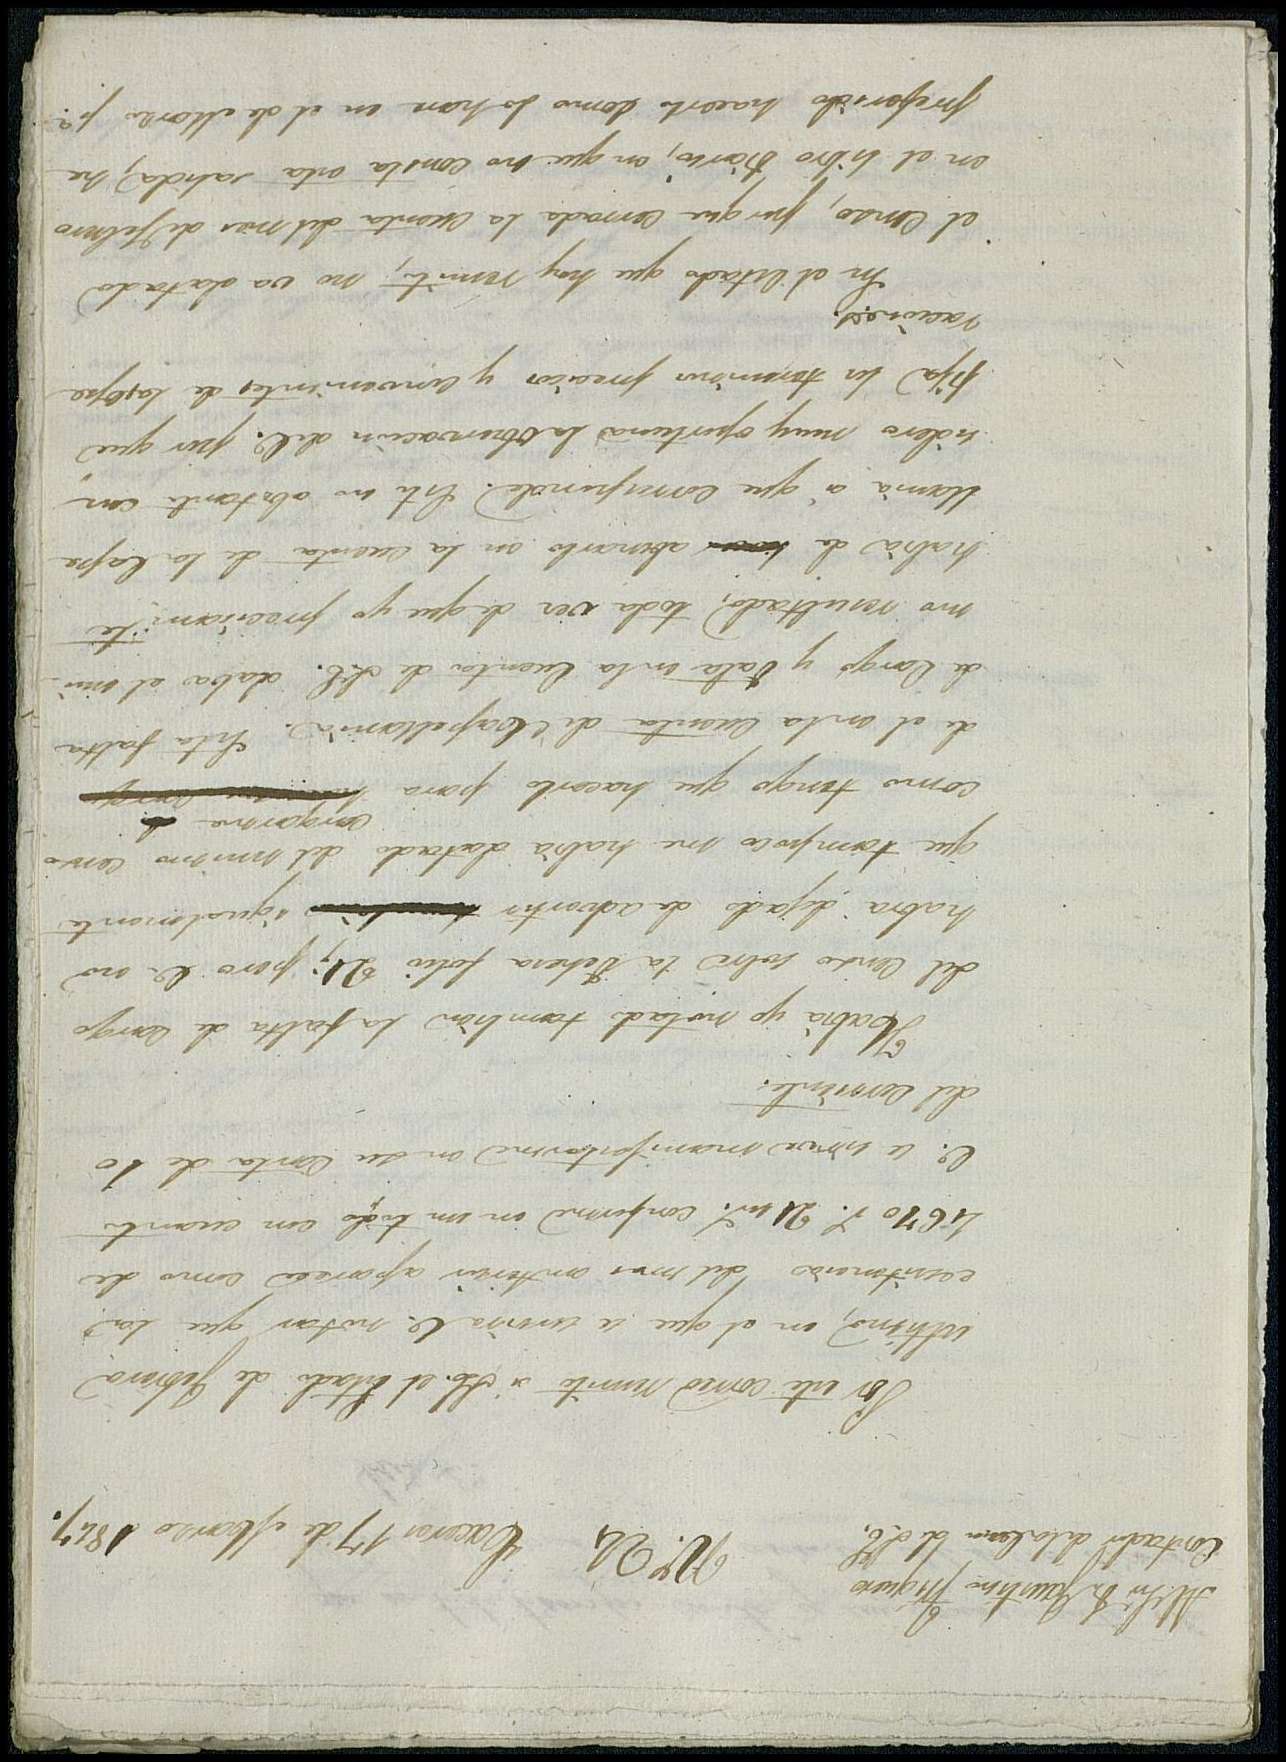 Al Sr. D. Faustino Trigueros
Contador de la casa del S.E.
Nº. 24
Caceres 17 de Marzo 1847.
Por este correo remito á S.E. el Estado de Febrero
ultimo, en el que se servirá V. notar que la
existencia del mes anterior aparece como de
4670 r. 21 m. conforme en un todo con cuanto
V. se sirve manifestarme en su Carta de 10
del corriente.
Habia yo notado tambien la falta de cargo
del Censo sobre la Dehesa folio 21; pero V. no
habrá dejado de advertir igualmente
que tampoco me habia datado del mismo censo
cargarme
como tengo que hacerlo para
de el en la Cuenta de la Capellania. Esta falta
de Cargo y Data en la Cuenta de S.E. daba el mis-
mo resultado, toda vez de que yo precisam.te
habia de abonarlo en la Cuenta de la Cape
llania á que corresponde. Esto no obstante con-
sidero muy oportuna la observacion de V. por que
fija los terminos precisos y convenientes de las ope
raciones.
En el Estado que hoy remito, no va datado
el Censo, por que cerrada la Cuenta del mes de Febrero
en el Libro Diario, en que no consta esta salida, he
preferido hacerlo como lo haré en el de Marzo p.º